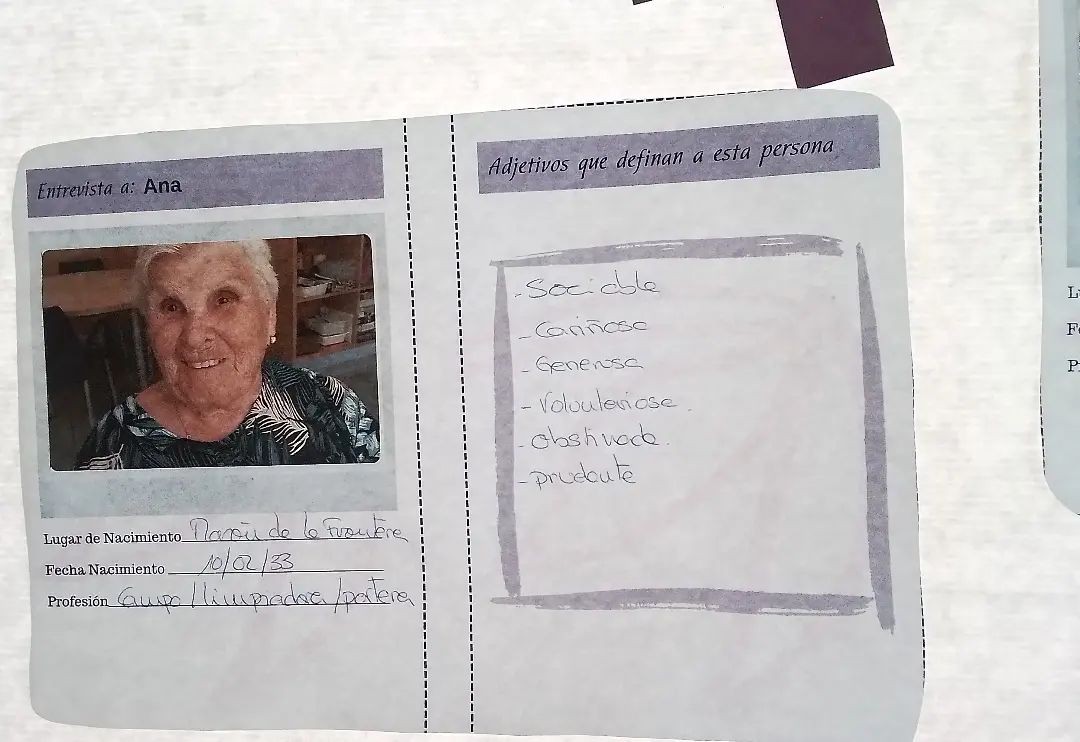 Entrevista a: Ana
Lugar de Nacimiento Morón de la Frontera
Fecha Nacimiento 10/02/33
Profesión Campo / limpiadora / portera
Adjetivos que definan a esta persona
- Sociable
- Cariñosa
- Generosa
- Voluntariosa.
- Obstinada.
- prudente